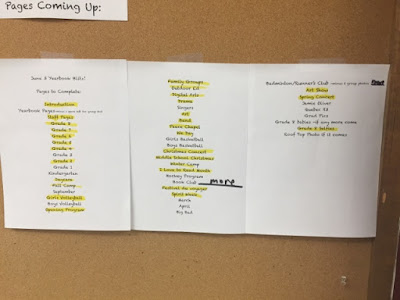 Pages Coming Up:
June 8 Yearbook Bills!
Pages to Complete:
Introduction
Yearbook Pages
Staff Pages
Grade 8
Grade 7
Grade 6
Grade 5
Grade 4
Grade 3
Grade 2
Grade 1
Kindergarten
Fall Camp
September
Girls Volleyball
Boys Volleyball
Opening Program
Family Groups
Outdoor Ed
Digital Arts
Drama
Singers
Art
Band
Peace Chapel
We Day
Girls Basketball
Boys Basketball
Christmas Concert
Middle School Christmas
Winter Camp
I Love to Read Month
Rotary Program
Book Club more
Festival du voyageur
Spirit Week
March
April
Big Dad
Badminton/Runner's Club
Art Show
Spring Concert
Jamie Oliver
Quebec
Grad Pics
Grade 8 babies -if any more come
Grade 8 babies
Grad Top Picks if it comes